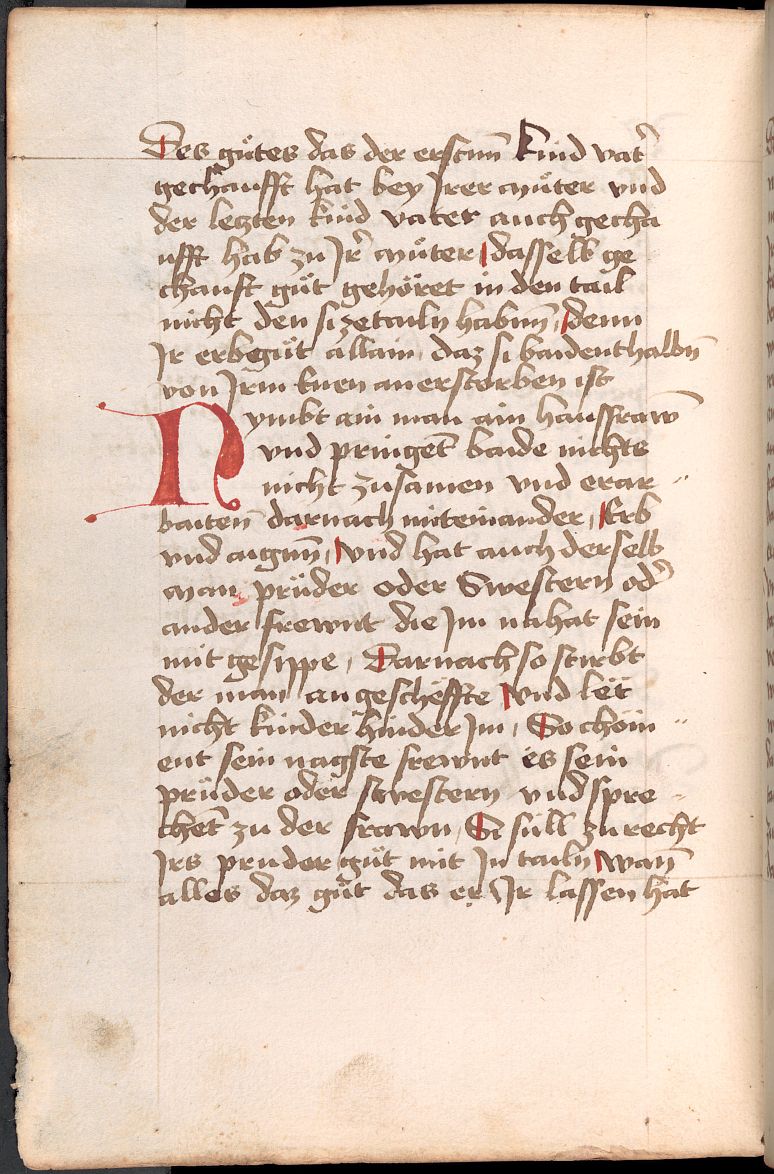 Des gůtes das der ersten̄ kind vat̾
gechaufft hat bey Jrer můter vnd
der leczten kind vater auch gecha
ufft hab zu Jr̾ můter / dasselb ge
chauft gůt gehöret in den tail
nicht den si zetailn haben̄ / denn
Jr erbegůt allain / daz si baidenthalbn̄
von Jrm enen anerstorben ist
Nymbt ain man ain hausfraw̄
vnd pringet̄ baide nichts
nicht zusamen vnd erar-
baiten̄ darnach miteinander / Erb
vnd aigen̄ / vnd hat auch derselb
man prüder oder Swestern od̾
ander frewnt die Jm nahat sein
mit gesippe / Darnach so stirbt
der man an geschëffte / vnd lët
nicht kinder hinder Jm / So chöm-
ent sein nagste frewnt es sein
prüder oder swestern vnd spre-
chet̄ zu der frawn / Si süll zu recht
Jrs pruder gůt mit Jn tailn / wan̄
alles daz gůt das er Jr lassen hat